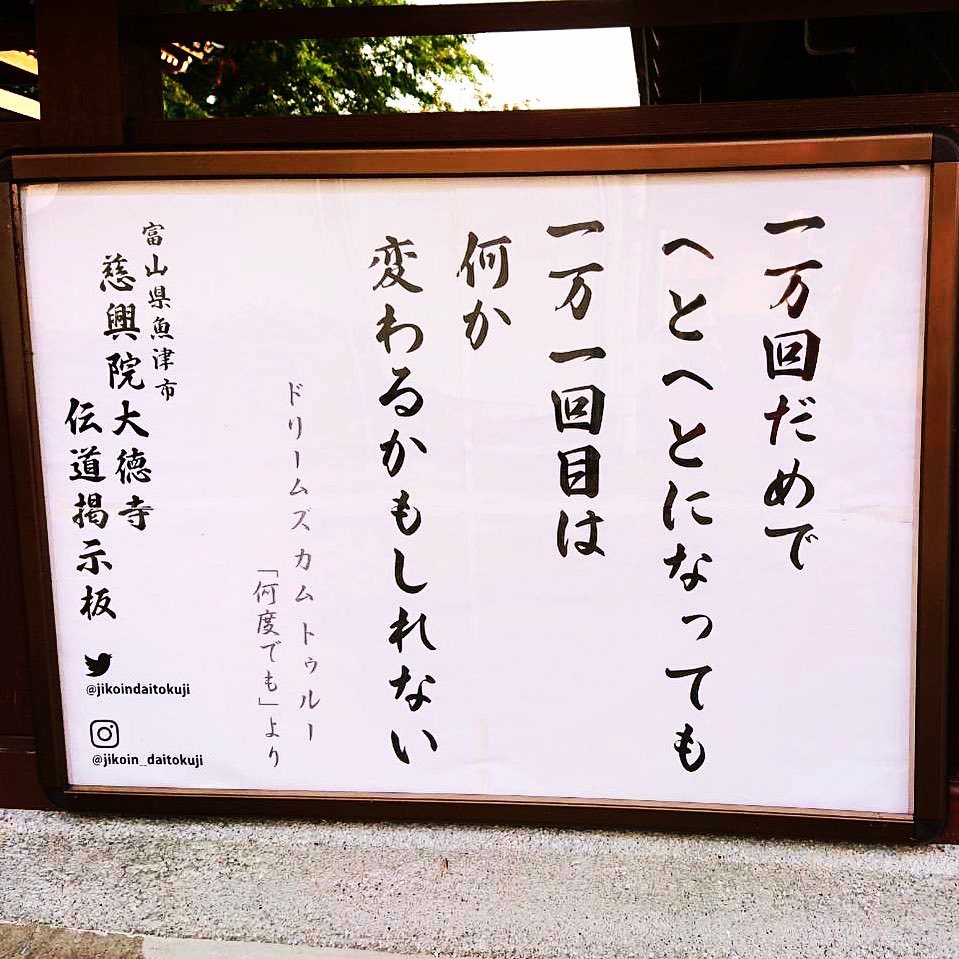 一万回だめで
へとへとになっても
一万一回目は
何か
変わるかもしれない
ドリームズカムトゥルー
「何度でも」より
富山県魚津市
慈興院大徳寺
伝道掲示板
@jikoindaitokuji
@jikoin_daitokuji